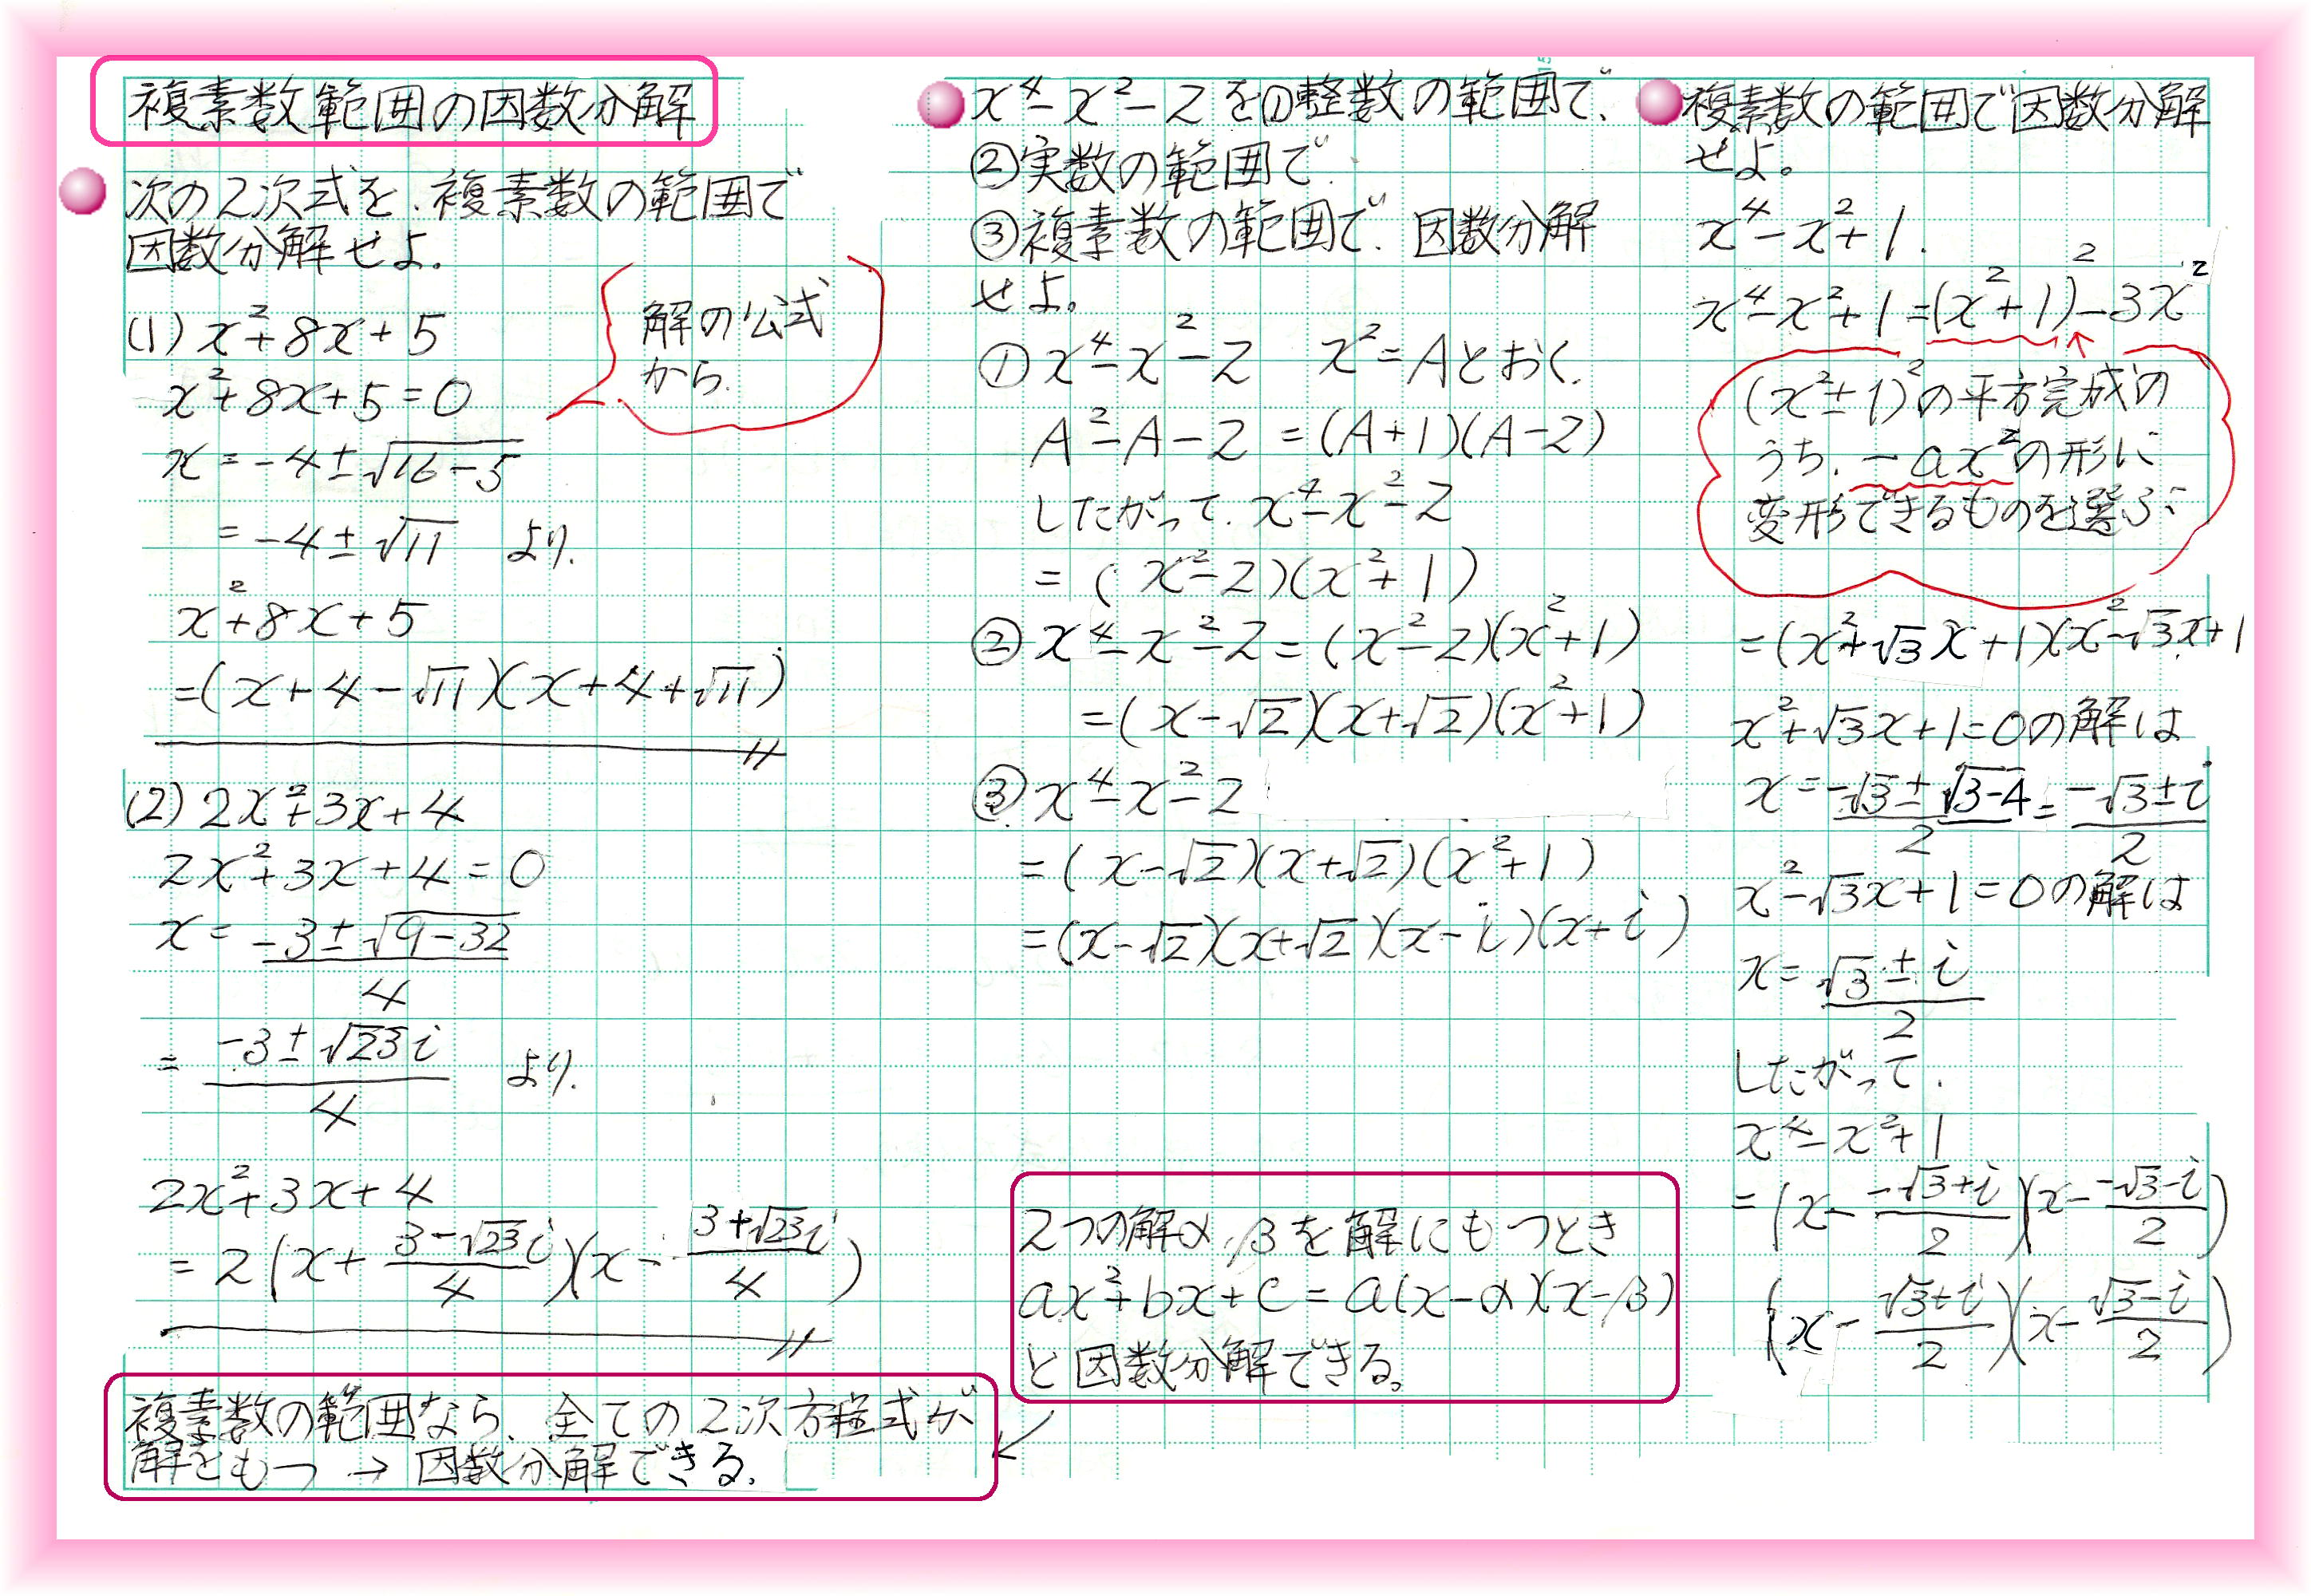 複素数範囲の因数分解
次の2次式を、複素数の範囲で
因数分解せよ。
(1) x²+8x+5
x²+8x+5=0
x=-4±√16-5
=-4±√11 より、
解の公式
から、
x²+8x+5
=(x+4-√11)(x+4+√11)
(2) 2x²+3x+4
2x²+3x+4=0
x=-3±√9-32/4
=-3±√23i/4 より、
2x²+3x+4
=2(x+3-√23i/4)(x-3+√23i/4)
複素数の範囲なら、全ての2次方程式が
解をもつ → 因数分解できる。
x⁴-x²-2を①整数の範囲で、
②実数の範囲で、
③複素数の範囲で、因数分解
せよ。
① x⁴-x²-2 x²=Aとおく、
A²-A-2=(A+1)(A-2)
したがって、x⁴-x²-2
=(x²-2)(x²+1)
② x⁴-x²-2=(x²-2)(x²+1)
=(x-√2)(x+√2)(x²+1)
③ x⁴-x²-2
=(x-√2)(x+√2)(x²+1)
=(x-√2)(x+√2)(x-i)(x+i)
2つの解α,βを解にもつとき
ax²+bx+c=a(x-α)(x-β)
と因数分解できる。
複素数の範囲で因数分解
せよ。
x⁴-x²+1.
x⁴-x²+1=(x²+1)²-3x²
(x²±1)²の平方完成の
うち、-ax²の形に
変形できるものを選ぶ
=(x²+√3x+1)(x²-√3x+1
x²+√3x+1=0の解は
x=-√3±√3-4/2=-√3±i/2
x²-√3x+1=0の解は
x=√3±i/2
したがって、
x⁴-x²+1
=(x--√3+i/2)(x--√3-i/2)
(x-√3+i/2)(x-√3-i/2)